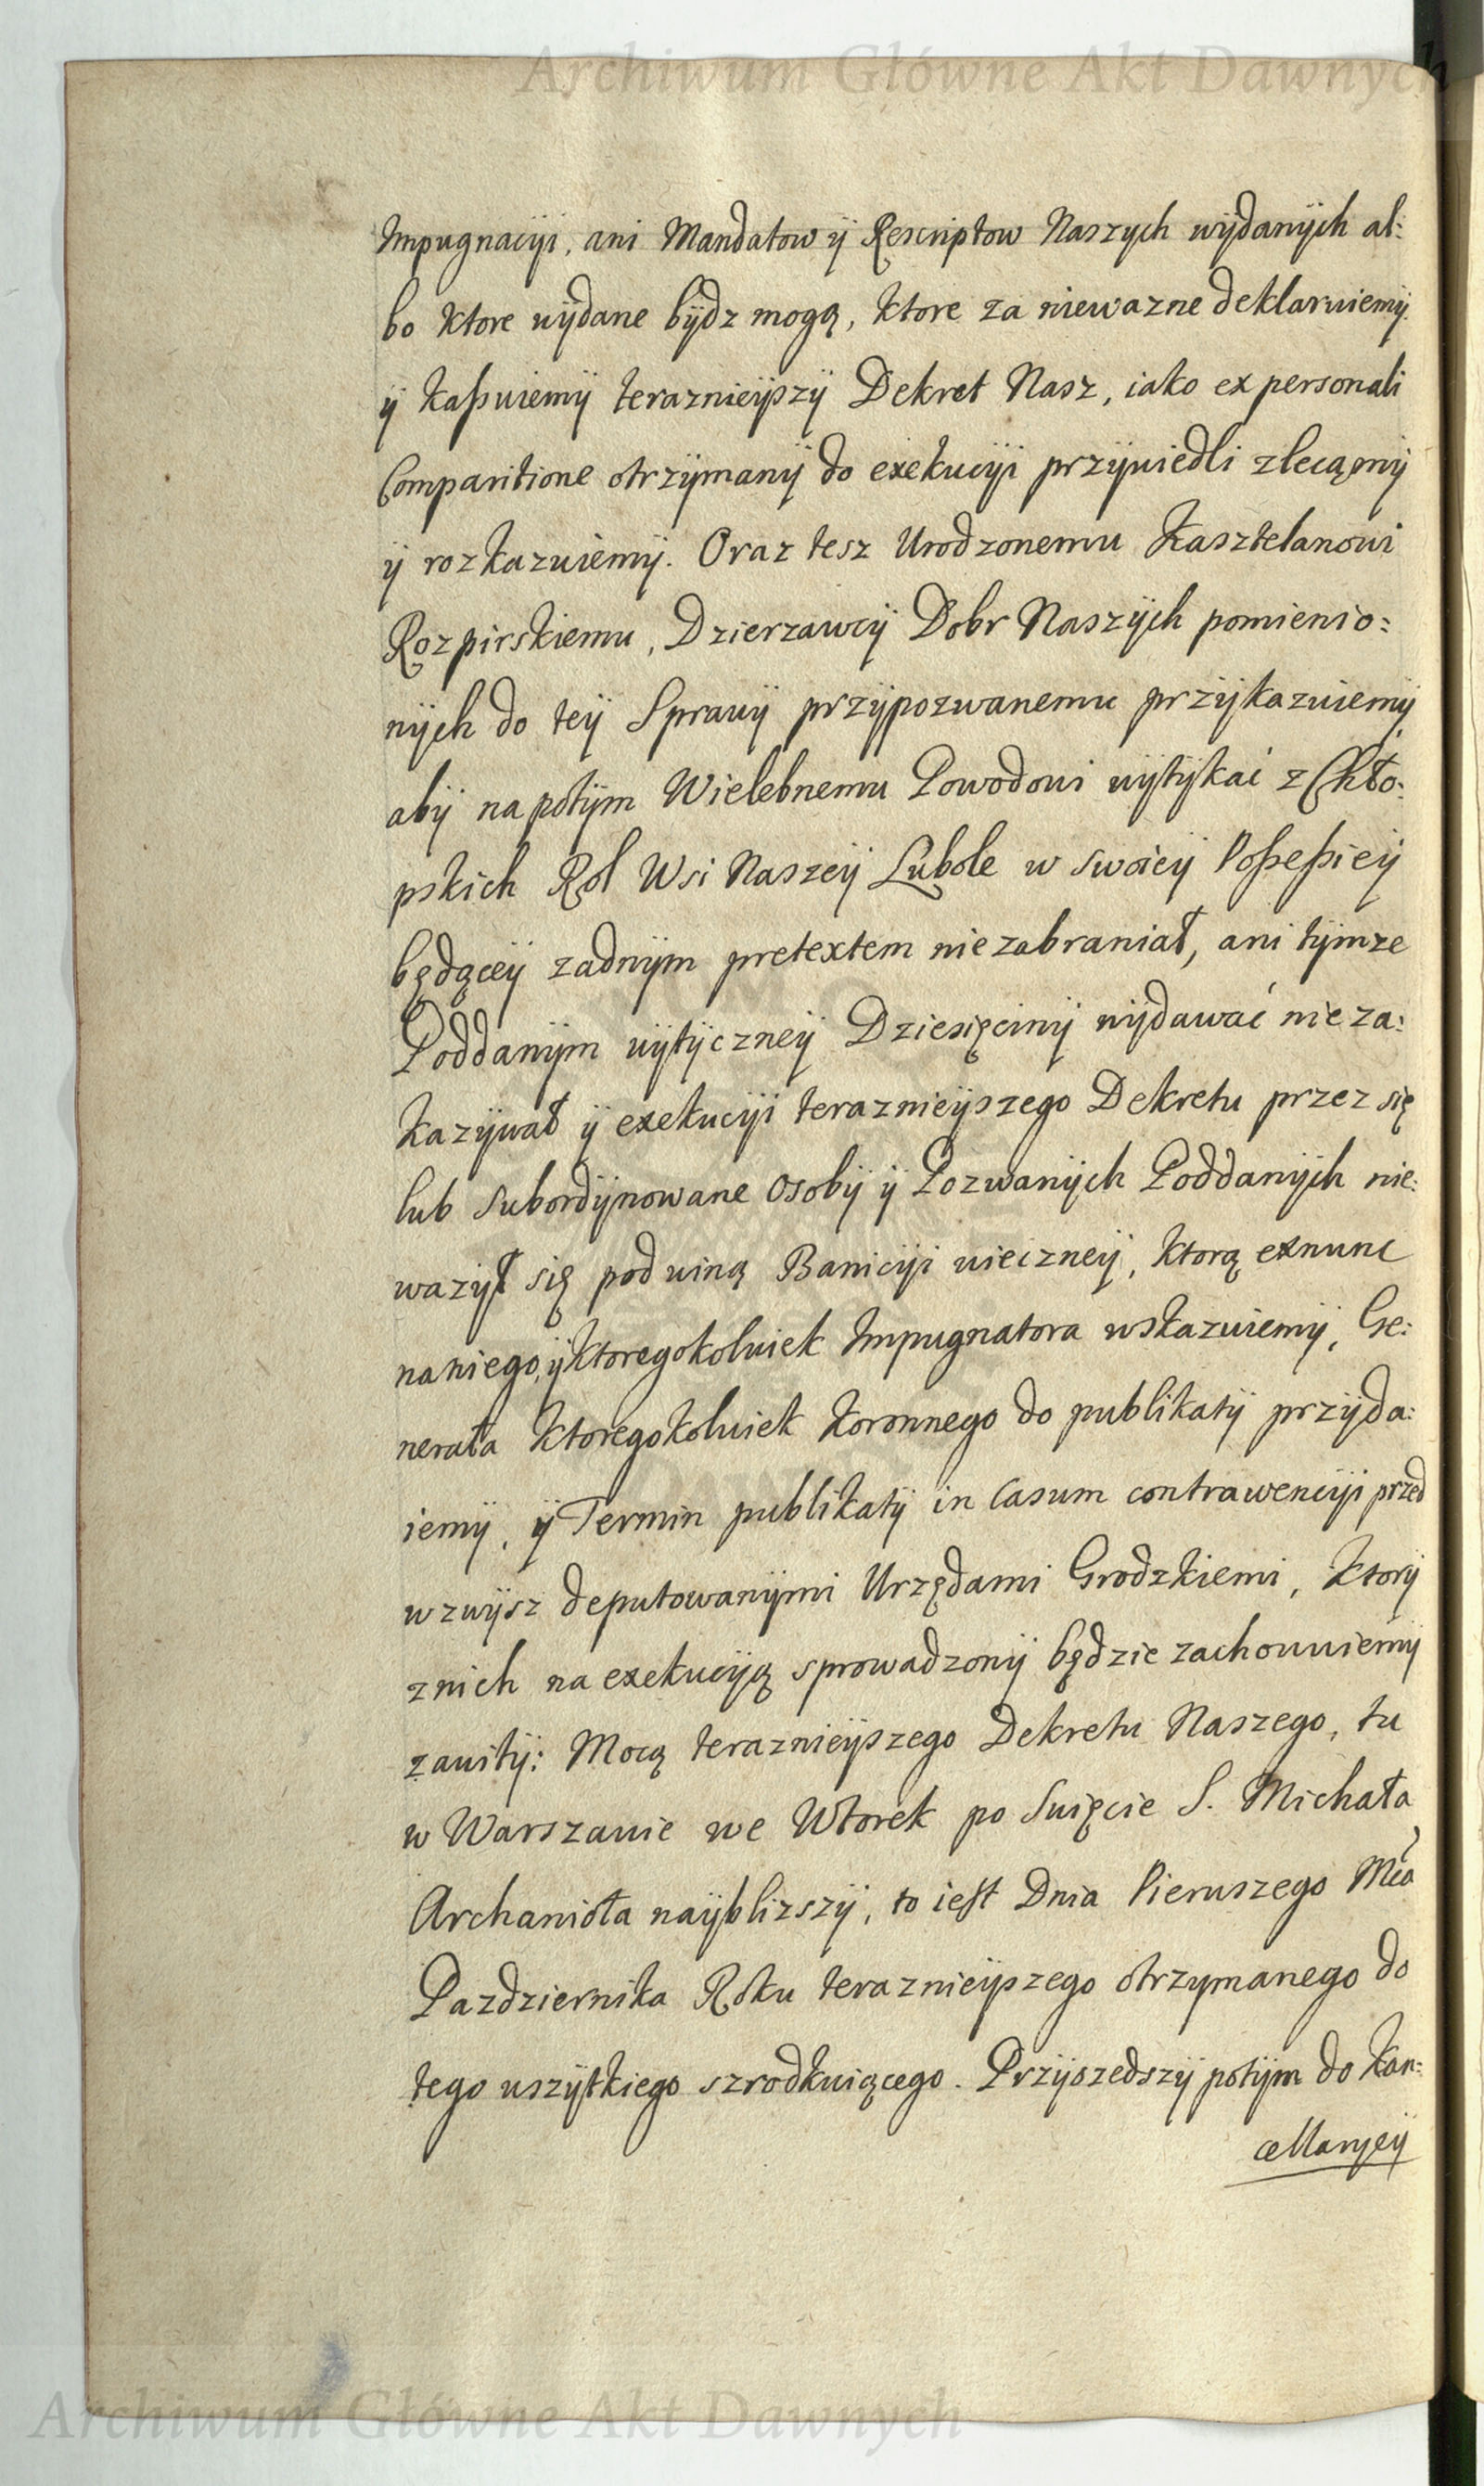 Archiwum Główne Akt Dawnych
Impugnacÿi, ani Mandatow ÿ Rescriptow Naszych wÿdanÿch al:
bo ktore wÿdane bÿdz mogą, ktore za niewazne deklaruiemÿ.
ÿ kaßuiemÿ teraznieÿszÿ Dekret Nasz, iako ex personali
Comparitione otrzÿmanÿ do exekucÿi przÿwiedli zlecąmÿ
ÿ rozkazuiemÿ. Oraz tesz Urodzonemu Kasztelanowi
Rozpirskiemu, Dzierzawcÿ Dobr Naszÿch pomienio:
nÿch do teÿ Sprawÿ przÿpozwanemu przÿkazuiemÿ,
abÿ napotÿm Wielebnemu Powodowi wÿtÿkać z Chło:
pskich Rol Wsi Naszeÿ Lubole w swoieÿ Poßeßieÿ
będąceÿ zadnÿm pretextem niezabraniał, ani tÿmze
Poddanÿm wÿtÿczneÿ Dziesięcinÿ wÿdawać nie za:
kazÿwał ÿ exekucÿi teraznieÿszego Dekretu przez się
lub subordÿnowane osobÿ ÿ Pozwanÿch Poddanÿch nie:
wazÿł się pod winą Banicÿi wieczneÿ, ktorą exnunc
naniego, ÿ ktoregokolwiek Impugnatora wskazuiemÿ, Ge:
nerała ktoregokolwiek koronnego do publikatÿ przÿda:
iemÿ, ÿ Termin publikatÿ in Casum contrawencÿi przed
wzwÿsz deputowanÿmi Urzędami Grodzkiemi, ktorÿ
znich na exekucÿą sprowadzonÿ będzie zachowuiemÿ
zawitÿ: Mocą teraznieÿszego Dekretu Naszego, tu
w Warszawie we Wtorek po Swięcie S. Michała
Archanioła naÿblizszÿ, to iest Dnia Pierwszego Mca
Pazdziernika Roku teraznieÿszego otrzymanego do
tego wszÿtkiego szrodkuiącego. Przÿszedszÿ potÿm do Kan:
cellaryeÿ
Archiwum Główne Akt Dawnych